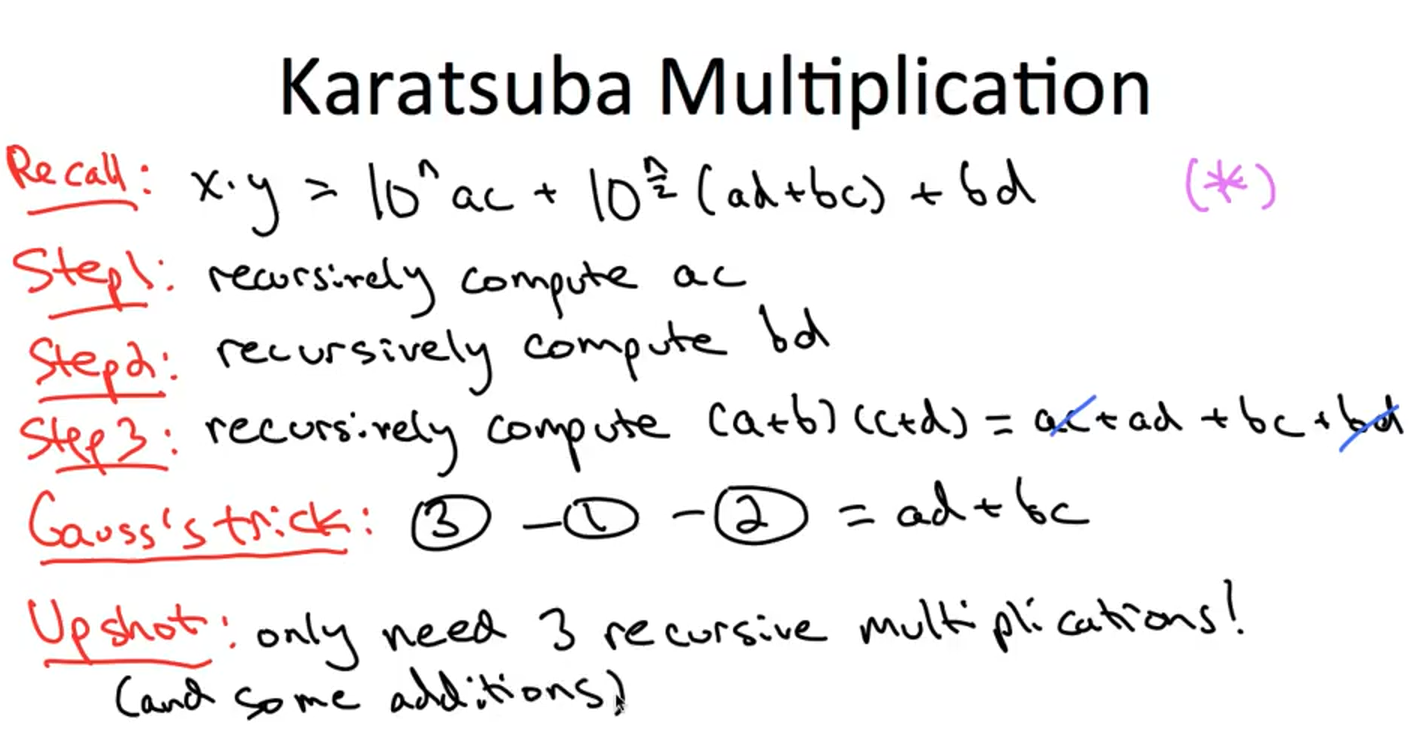 Karatsuba Multiplication
Recall: x·y = 10ⁿ ac + 10^(n/2) (ad+bc) + bd (*)
Step1: recursively compute ac
Step2: recursively compute bd
Step3: recursively compute (a+b)(c+d) = ac + ad + bc + bd
Gauss's trick: ③ - ① - ② = ad + bc
Upshot: only need 3 recursive multiplications!
(and some additions)